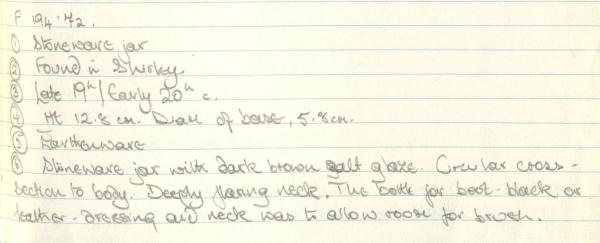 F 194'72.
① Stoneware jar
② Found in Shirley
③ Late 19th/Early 20th c.
④ Ht 12.8 cm. Diam of base, 5.8cm.
⑤ Earthenware
⑥ Stoneware jar with dark brown salt glaze. Circular cross-
section to body. Deeply flaring neck. The bottle for boot-black or
leather-dressing and neck was to allow room for brush.